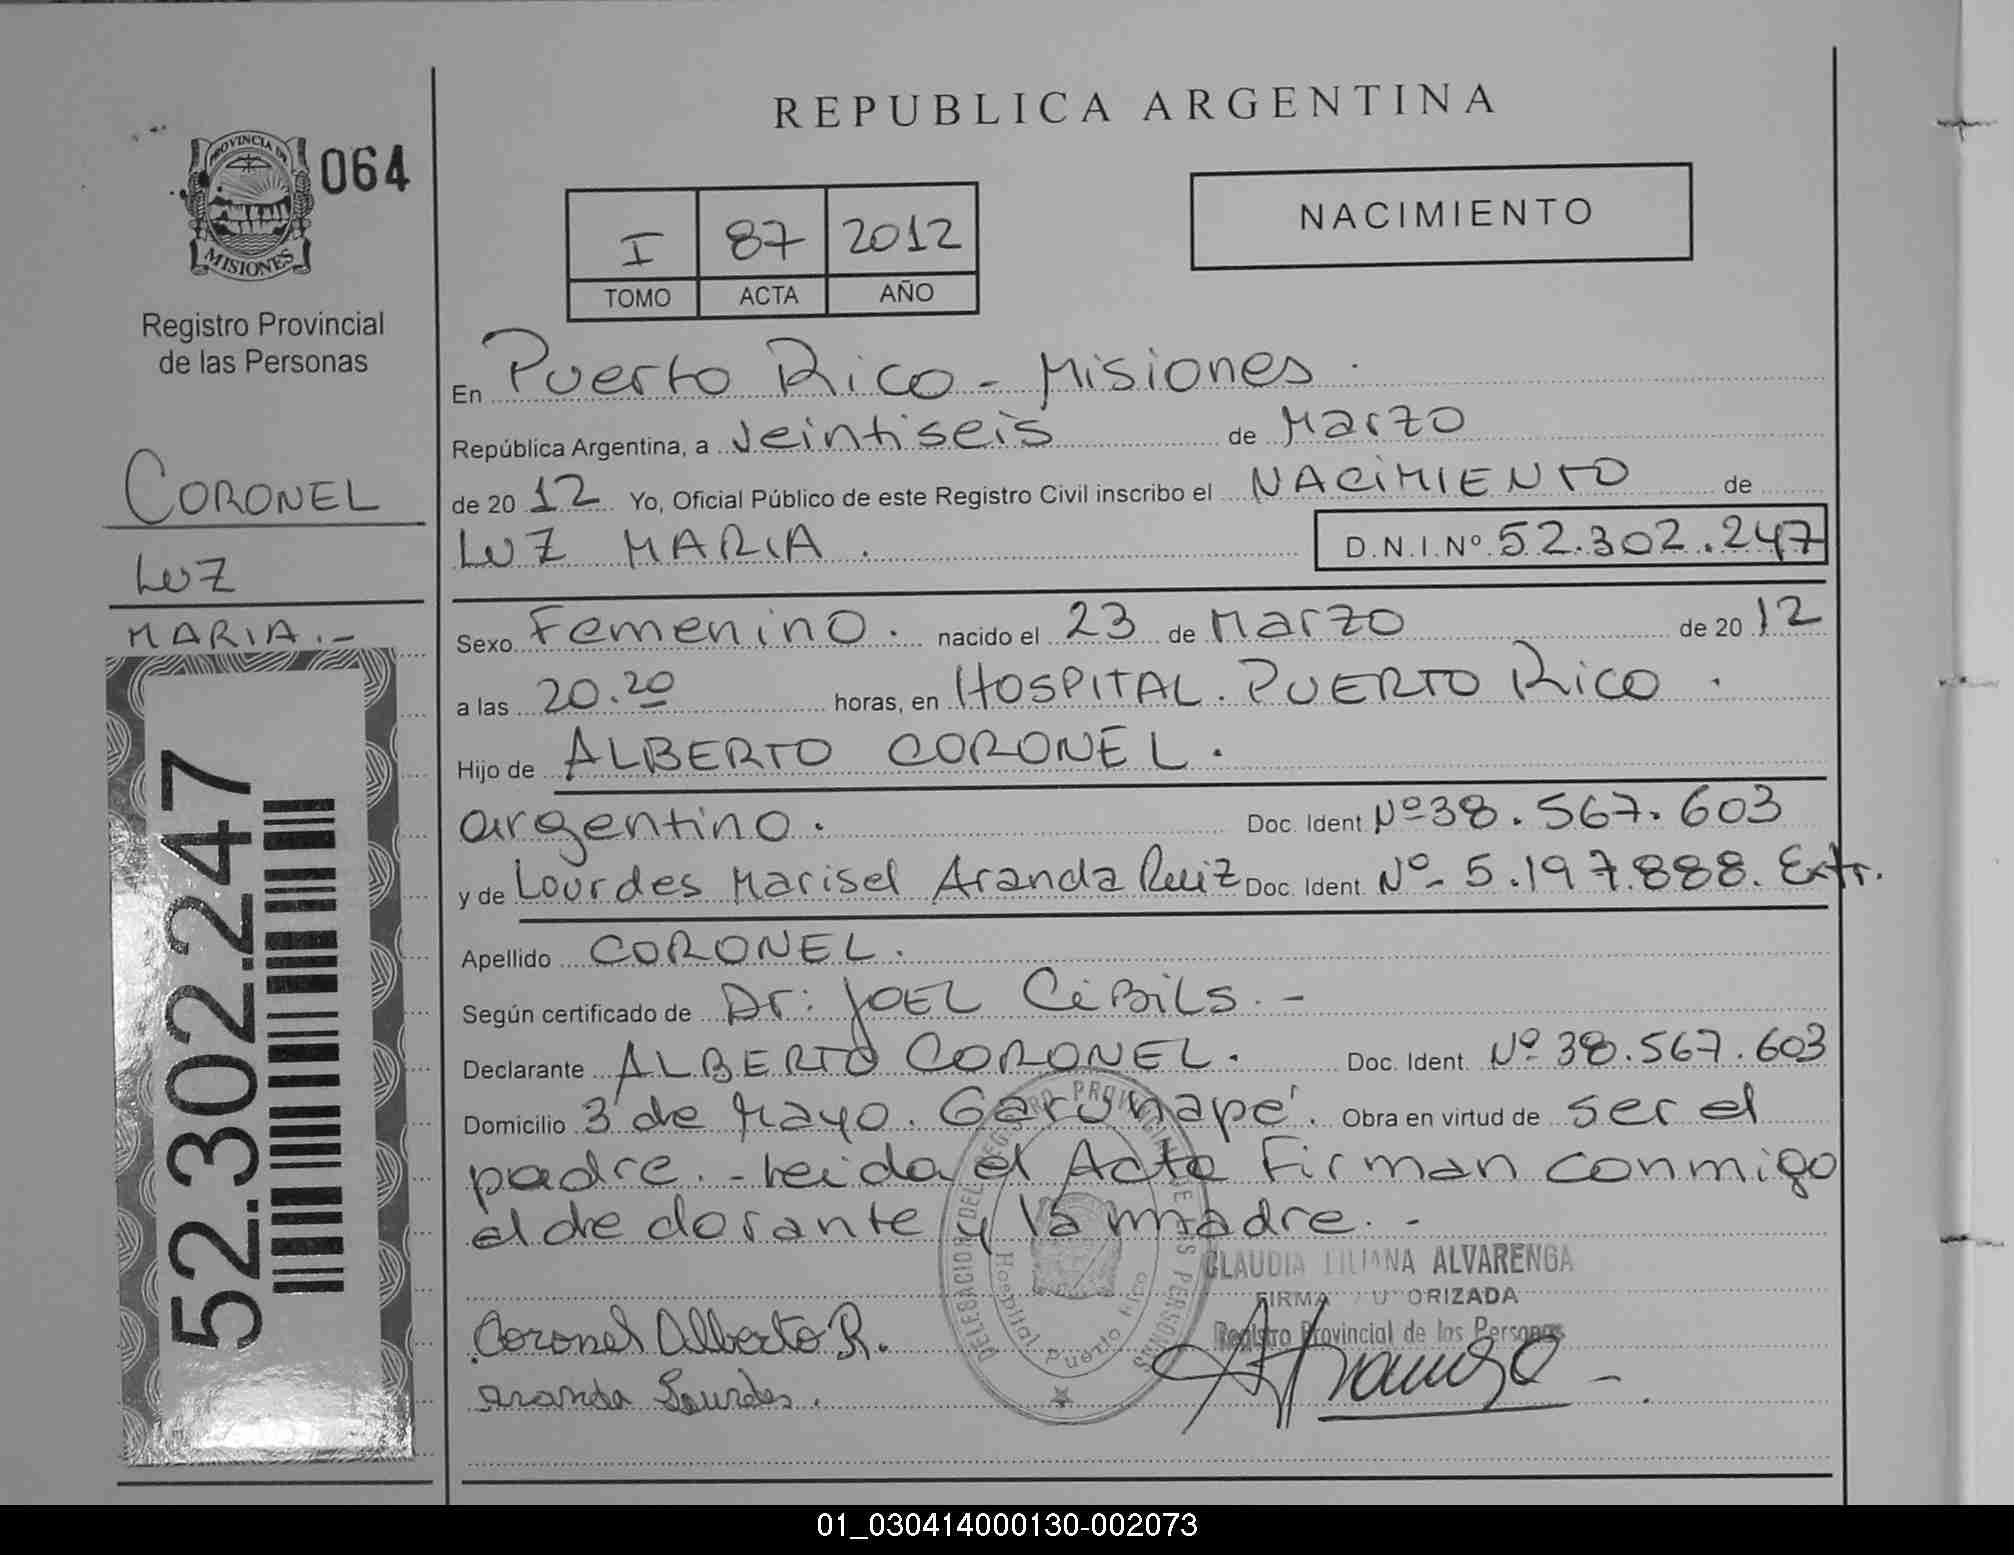 REPUBLICA ARGENTINA
PROVINCIA DE
MISIONES
064
Registro Provincial
de las Personas
CORONEL
LUZ
MARIA.-
52.302.247
I 87 2012
TOMO ACTA AÑO
NACIMIENTO
En Puerto Rico - Misiones.
República Argentina, a veintiseis de Marzo
de 2012 Yo, Oficial Público de este Registro Civil inscribo el NACIMIENTO de
LUZ MARIA. D.N.I.Nº 52.302.247
Sexo Femenino. nacido el 23 de Marzo de 2012
a las 20.20 horas, en HOSPITAL. PUERTO RICO.
Hijo de ALBERTO CORONEL.
argentino. Doc. Ident Nº 38.567.603
y de Lourdes Marisel Aranda Ruiz Doc. Ident. Nº 5.197.888. Extr.
Apellido CORONEL.
Según certificado de Dr: JOEL CIBILS.-
Declarante ALBERTO CORONEL. Doc. Ident. Nº 38.567.603
Domicilio 3 de Mayo. Garuhapé. Obra en virtud de ser el
padre.- Leida el Acta Firman conmigo
el declarante y la madre.-
CLAUDIA LILIANA ALVARENGA
FIRMA AUTORIZADA
Registro Provincial de las Personas
Coronel Alberto R.
Aranda Lourdes.
DELEGACION DEL REGISTRO PROVINCIAL DE LAS PERSONAS
Hospital Puerto Rico
01_030414000130-002073